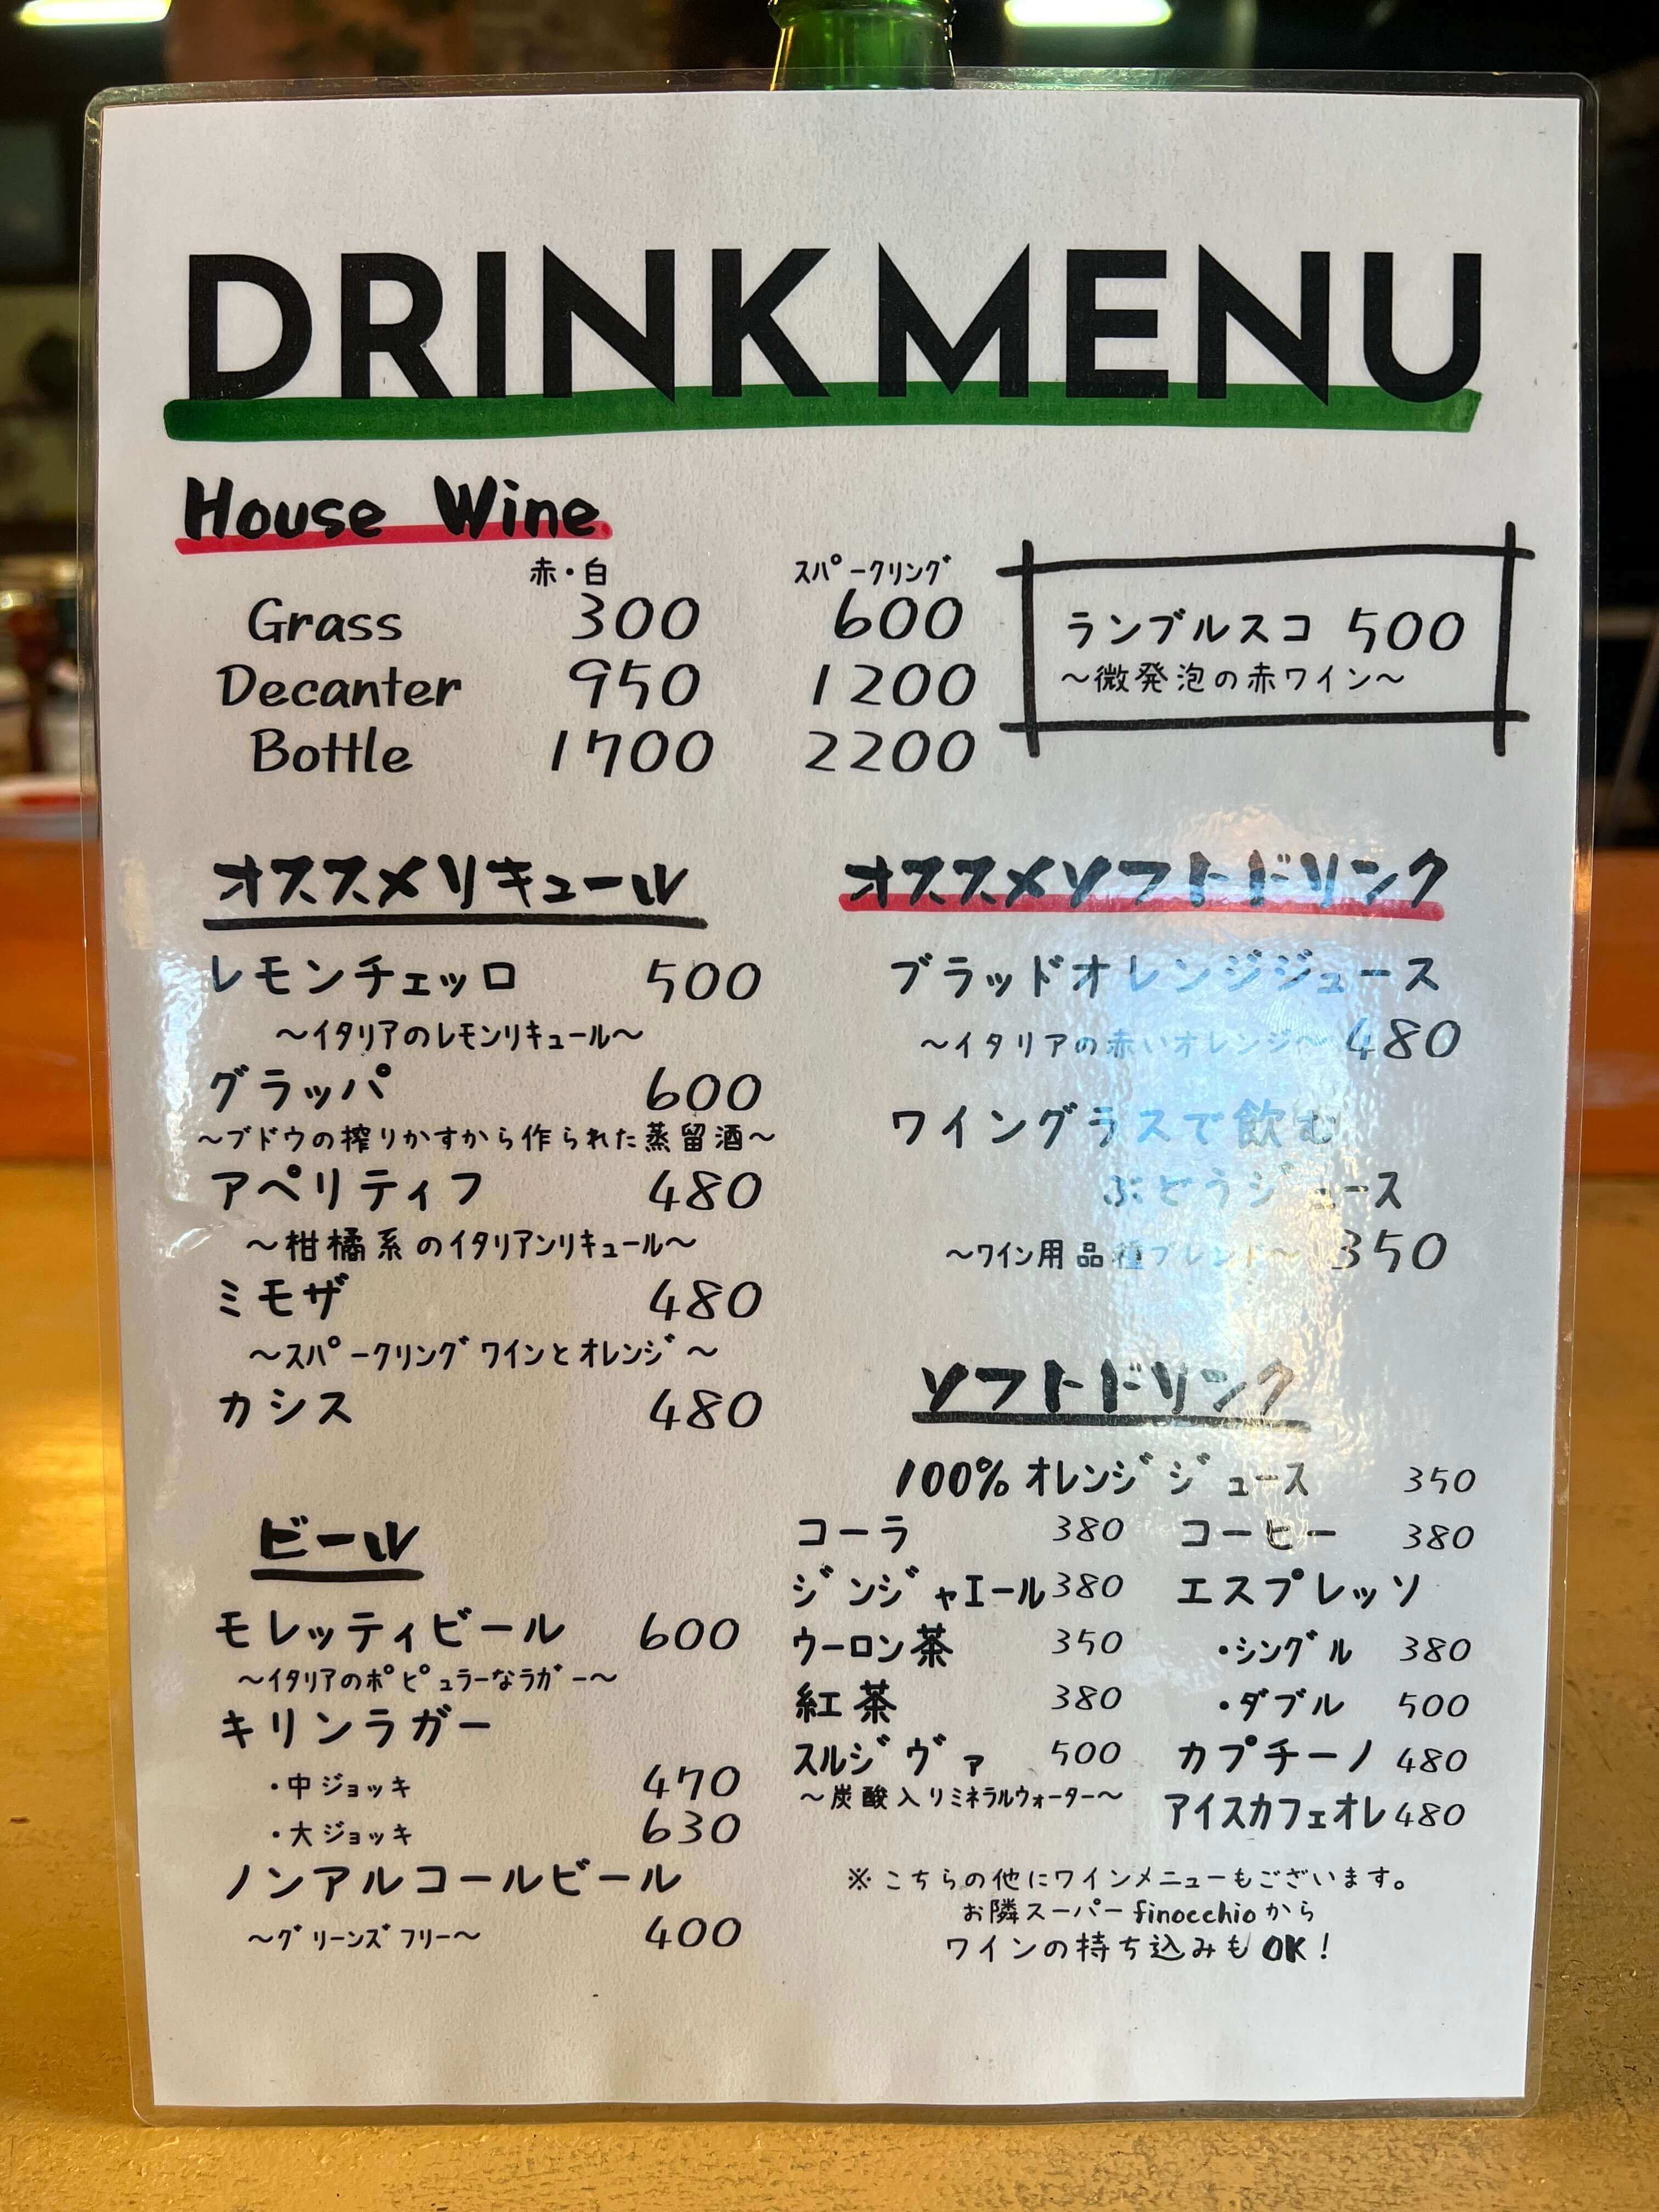 DRINK MENU
House Wine
赤・白 スパークリング
Grass 300 600
Decanter 950 1200
Bottle 1700 2200
ランブルスコ 500
～微発泡の赤ワイン～
オススメリキュール
レモンチェッロ 500
～イタリアのレモンリキュール～
グラッパ 600
～ブドウの搾りかすから作られた蒸留酒～
アペリティフ 480
～柑橘系のイタリアンリキュール～
ミモザ 480
～スパークリングワインとオレンジ～
カシス 480
ビール
モレッティビール 600
～イタリアのポピュラーなラガー～
キリンラガー
・中ジョッキ 470
・大ジョッキ 630
ノンアルコールビール
～グリーンズフリー～ 400
オススメソフトドリンク
ブラッドオレンジジュース
～イタリアの赤いオレンジ～ 480
ワイングラスで飲む
ぶどうジュース
～ワイン用品種ブレンド～ 350
ソフトドリンク
100%オレンジジュース 350
コーラ 380
ジンジャエール 380
ウーロン茶 350
紅茶 380
スルジヴァ 500
～炭酸入りミネラルウォーター～
コーヒー 380
エスプレッソ
・シングル 380
・ダブル 500
カプチーノ 480
アイスカフェオレ 480
※こちらの他にワインメニューもございます。
お隣スーパーfinocchioから
ワインの持ち込みもOK！